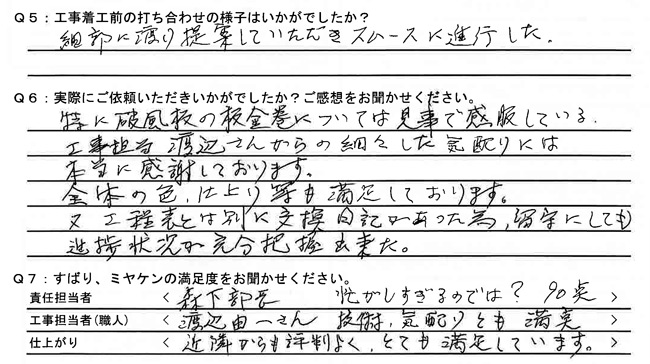 Q5：工事着工前の打ち合わせの様子はいかがでしたか？
細部に渡り提案していただきスムースに進行した。
Q6：実際にご依頼いただきいかがでしたか？ご感想をお聞かせください。
特に破風板の板金巻については見事で感服している。
工事担当 渡辺さんからの細々した気配りには
本当に感謝しております。
全体の色、仕上り等も満足しております。
又工程表とは別に交換日記があった為、留守にしても
進捗状況が充分把握出来た。
Q7：ずばり、ミヤケンの満足度をお聞かせください。
責任担当者 ＜ 森下部長 忙がしすぎるのでは？ 90点 ＞
工事担当者(職人) ＜ 渡辺由一さん 技術、気配りとも 満点 ＞
仕上がり ＜ 近隣からも評判よく、とても満足しています。 ＞